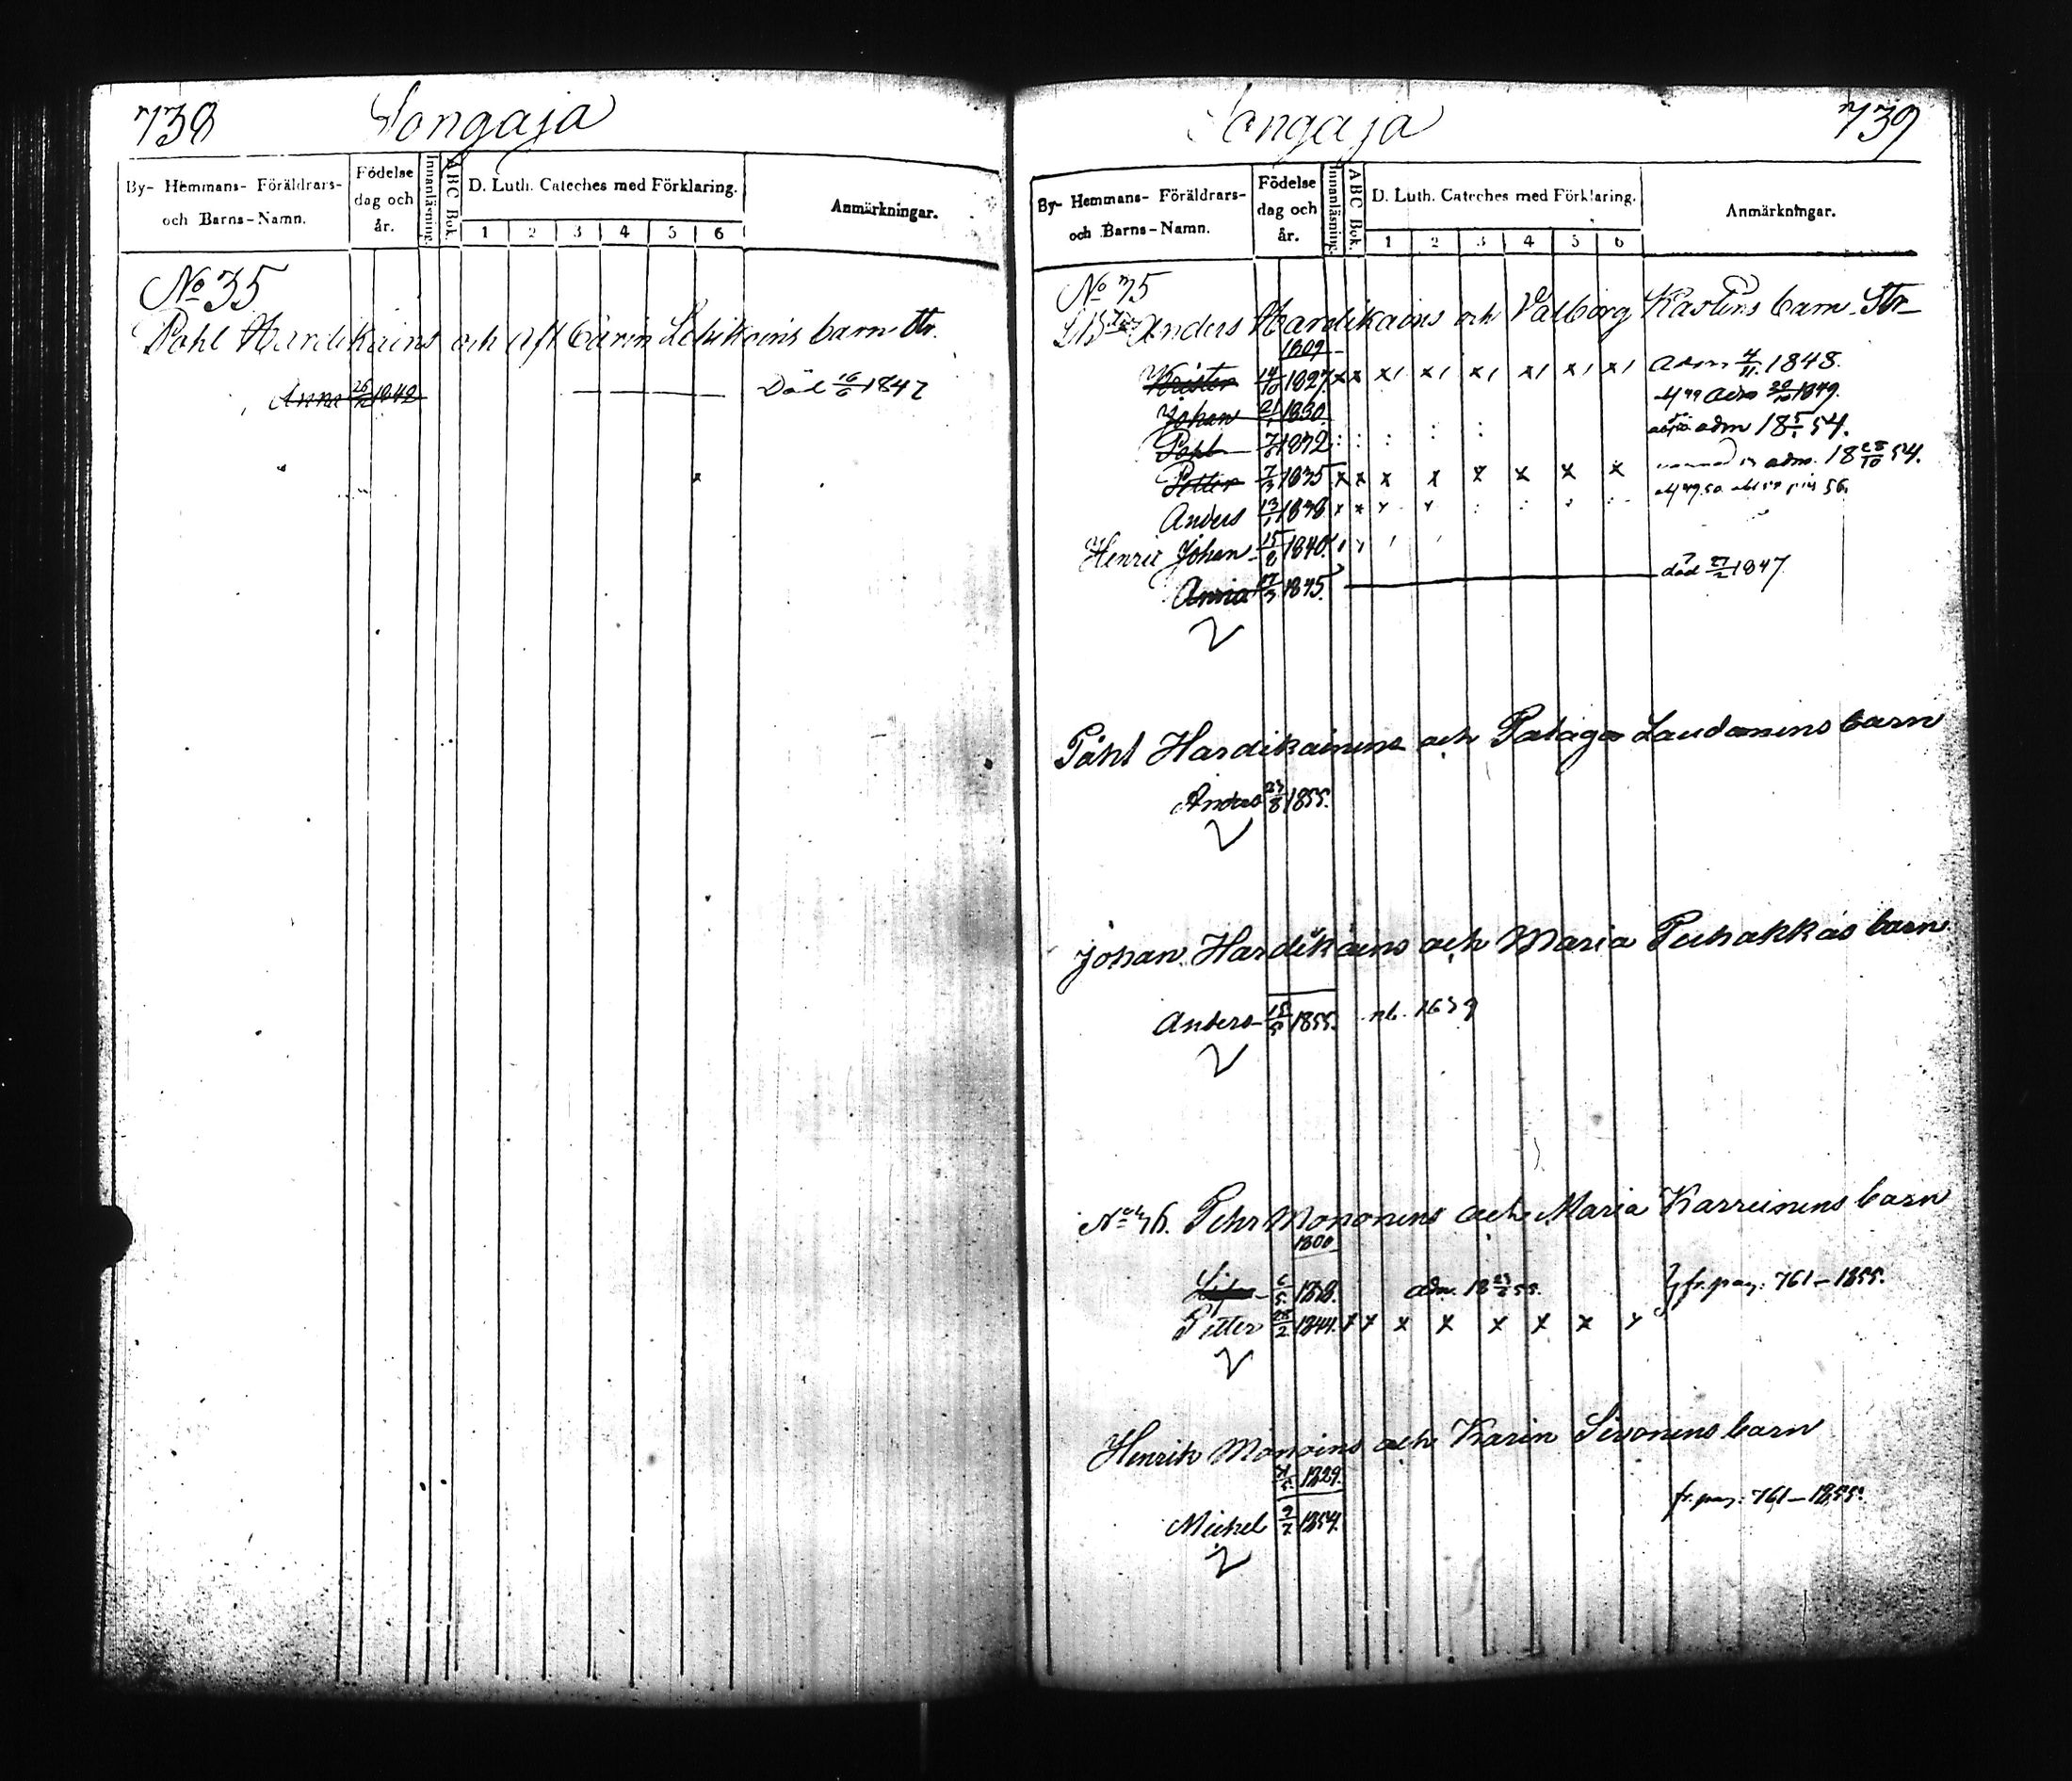 738 Songaja
By- Hemmans- Föräldrars- och Barns-Namn.
Födelse dag och år.
Innanläsning.
ABC Bok.
D. Luth. Cateches med Förklaring.
1 2 3 4 5 6
Anmärkningar.
No 35
Pahl Hardikains och Carin barn
Anna 1842 Död 16/6 1847
Songaja 739
By- Hemmans- Föräldrars- och Barns-Namn.
Födelse dag och år.
Innanläsning.
ABC Bok.
D. Luth. Cateches med Förklaring.
1 2 3 4 5 6
Anmärkningar.
No 35
Anders Hardikains och Valborg barn
1809
Krister 1827 x x x x x x x x adm 4/11 1848.
Johan 21/1 1830. 1849.
Pahl adm 18 5/1 54.
Petter 7/3 1835 x x x x x x x x adm. 18 28/10 54.
Anders 13/1 1838
Henric Johan 15/8 1840
Anna 1845. död 1847
Påhl Hardikainens och Laudanens barn
Anders 23/8 1855.
Johan Hardikains och Maria Puhakkas barn
Anders 1855. 1639
No 36. Pehr Mononens och Maria Karreinens barn
1800
1838. adm. 18 55. fr. pag: 761–1855.
Petter 28/2 1844. x x x x x x x x
Henrik Monoins och Karin Sivonens barn
1829.
Michel 1854. fr. pag: 761–1855.